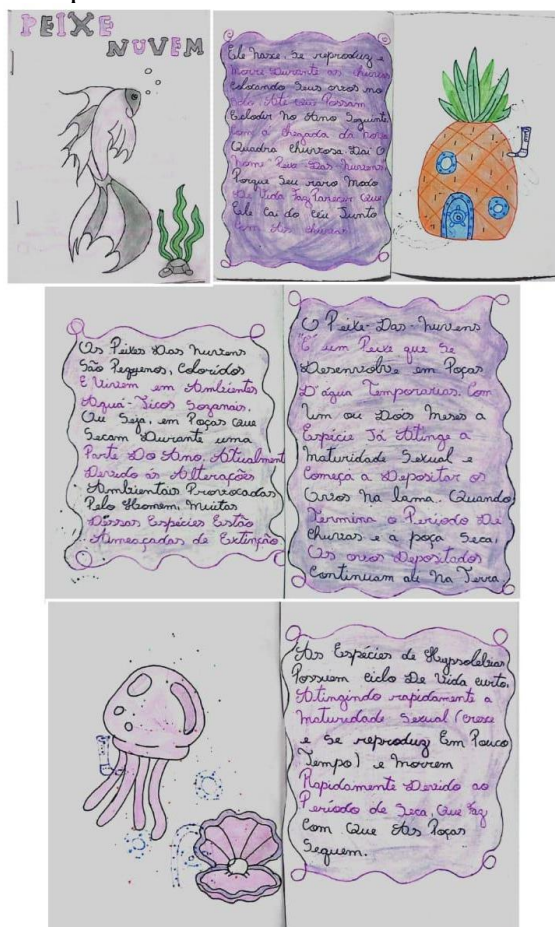 PEIXE
NUVEM
Ele Nasce, Se reproduz e
Morre Durante as chuvas
Colocando Seus ovos no
solo, Até que Possam
Eclodir No Ano Seguinte
Com a chegada da nova
Quadra Chuvosa. Daí O
Nome Peixe-Das-Nuvens,
Porque Seu raro Modo
De Vida Faz Parecer Que
Ele Cai do Céu Junto
Com As chuvas.
Os Peixes Das Nuvens
São Pequenos, Coloridos
E Vivem em Ambientes
Aquá-Ticos Sazonais,
Ou Seja, em Poças Que
Secam Durante uma
Parte Do Ano. Atualment
Devido ás Alterações
Ambientais Provocadas
Pelo Homem, Muitas
Dessas Espécies Estão
Ameaçadas de Extinção
O Peixe-Das-Nuvens
"É" um Peixe que Se
Desenvolve em Poças
D'água Temporarias. Com
Um ou Dois Meses a
Espécie Já Atinge a
Maturidade Sexual e
Começa a Depositar os
Ovos Na lama. Quando
Termina o Periodo De
Chuvas e a poça Seca,
Os ovos Depositados
Continuam ali Na Terra
As Espécies de Hypsolebias
Possuem ciclo De Vida curto,
Atingindo rapidamente a
Maturidade Sexual (cresce
e Se reproduz Em Pouco
Tempo) e Morrem
Rapidamente Devido ao
Período de Seca, Que Faz
Com Que As Poças
Sequem.